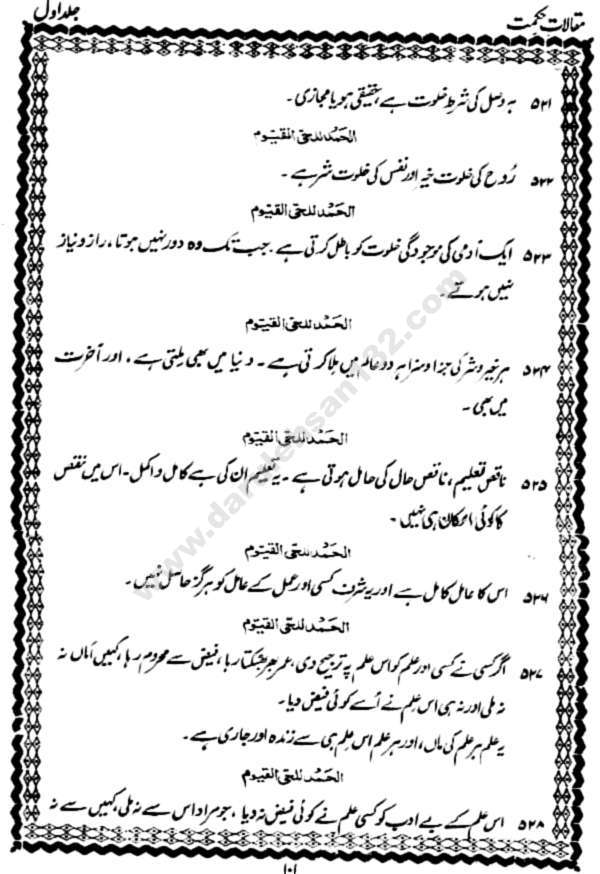 مقالات حکمت
جلد اول
۵۲۱ ہر وصل کی شرط خلوت ہے، حقیقی ہو یا مجازی۔
الحمد للحی القیوم
۵۲۲ رُوح کی خلوت خیر اور نفس کی خلوت شر ہے۔
الحمد للحی القیوم
۵۲۳ ایک آدمی کی موجودگی خلوت کو باطل کرتی ہے۔ جب تک وہ دور نہیں ہوتا، راز و نیاز
نہیں ہوتے۔
الحمد للحی القیوم
۵۲۴ ہر خیر و شر کی جزا و سزا ہر دو عالم میں ملا کرتی ہے۔ دنیا میں بھی ملتی ہے، اور آخرت
میں بھی۔
الحمد للحی القیوم
۵۲۵ ناقص تعلیم، ناقص حال کی حامل ہوتی ہے۔ یہ تعلیم ان کی ہے کامل و اکمل۔ اس میں نقص
کا کوئی امکان ہی نہیں۔
الحمد للحی القیوم
۵۲۶ اس کا عامل کامل ہے اور یہ شرف کسی اور عمل کے عامل کو ہرگز حاصل نہیں۔
الحمد للحی القیوم
۵۲۷ اگر کسی نے کسی اور علم کو اس علم پہ ترجیح دی، عمر بھر بھٹکتا رہا، فیض سے محروم رہا، کہیں اماں نہ
نہ ملی اور نہ ہی اس علم نے اُسے کوئی فیض دیا۔
یہ علم ہر علم کی ماں، اور ہر علم اس علم ہی سے زندہ اور جاری ہے۔
الحمد للحی القیوم
۵۲۸ اس علم کے بے ادب کو کسی علم نے کوئی فیض نہ دیا، جو مراد اس سے نہ ملی، کہیں سے نہ
۱۰۱
www.darulehsan132.com